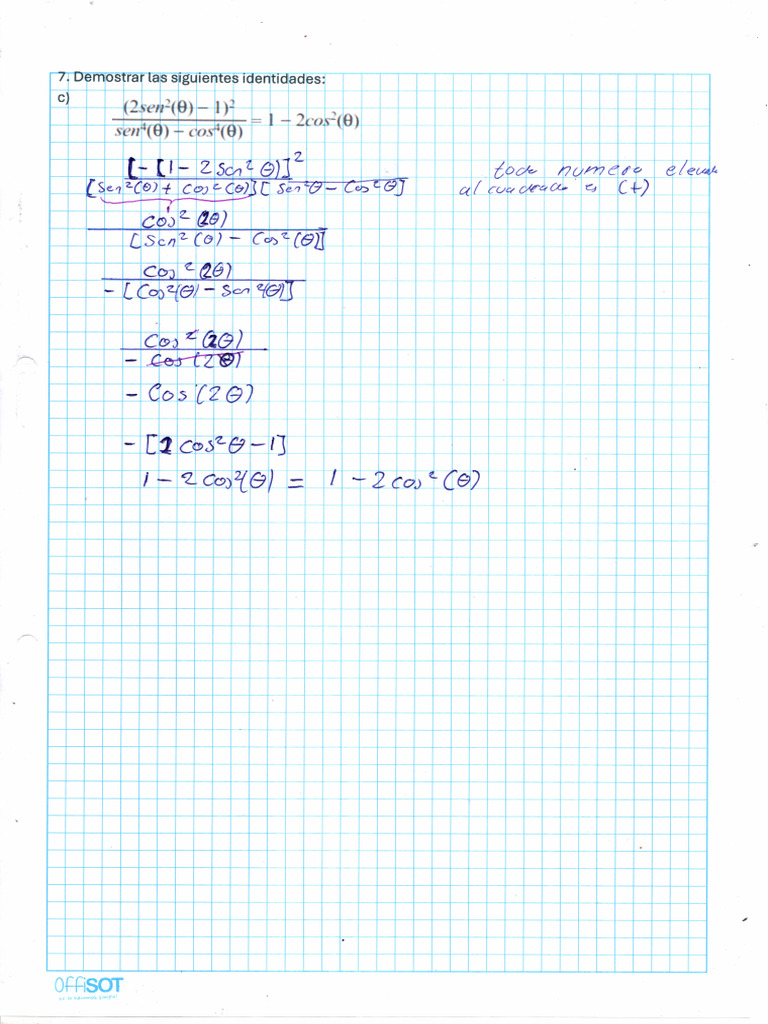 7. Demostrar las siguientes identidades:
c)
(2sen²(θ) – 1)² / sen⁴(θ) – cos⁴(θ) = 1 – 2cos²(θ)
[-[1 - 2 Sen² θ)]² / [Sen²(θ) + Cos²(θ)][Sen²θ - Cos²θ]
todo numero elevado
al cuadrado es (+)
1
Cos²(2θ) / [Sen²(θ) - Cos²(θ)]
Cos²(2θ) / -[Cos²(θ) - Sen²(θ)]
Cos²(2θ) / - Cos(2θ)
- Cos(2θ)
- [2 cos²θ - 1]
1 - 2 cos²(θ) = 1 - 2 cos²(θ)
OFFiSOT